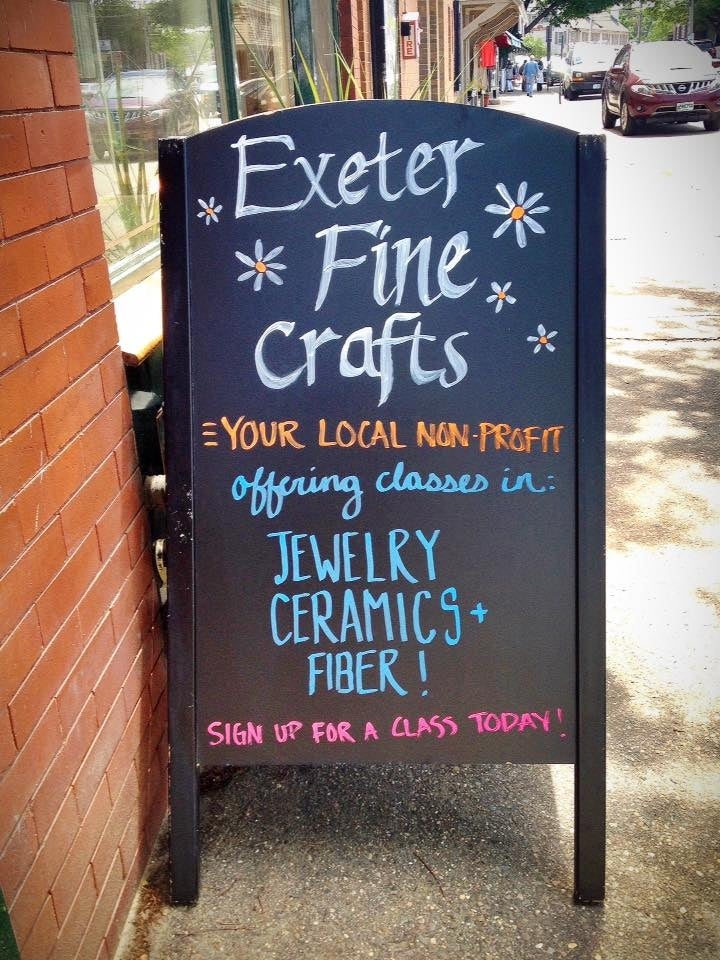 Exeter
Fine
Crafts
YOUR LOCAL NON-PROFIT
offering classes in:
JEWELRY
CERAMICS +
FIBER!
SIGN UP FOR A CLASS TODAY!